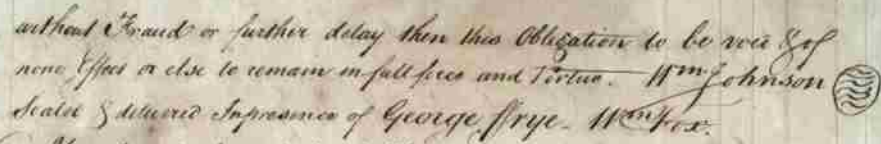 without Fraud or further delay then this Obligation to be void & of
none Effect or else to remain in full force and Virtue. Wm Johnson
Sealed & delivered Inpresence of George ffrye. Wm Fox.